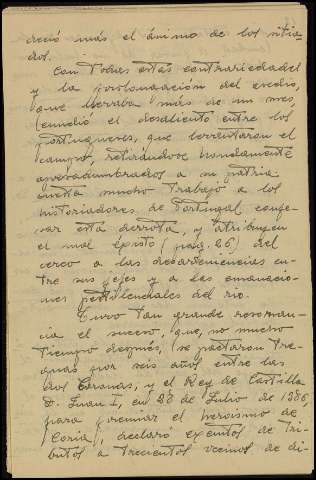 deció más el ánimo de los sitia-
dos.
Con todas estas contrariedades
y la prolongación del asedio,
que llevaba más de un mes,
cundió el desaliento entre los
portugueses, que levantaron el
campo, retirándose hondamente
apesadumbrados a su patria.
Cuesta mucho trabajo a los
historiadores de Portugal confe-
sar esta derrota, y atribuyen
el mal éxito (pág. 26) del
cerco a las desaveniencias en-
tre sus jefes y a las emanacio-
nes pestilenciales del río.
Tuvo tan grande resonan-
cia el suceso, que, no mucho
tiempo después, se pactaron tre-
guas por seis años entre las
dos Coronas, y el Rey de Castilla
D. Juan I, en 28 de Julio de 1386,
para premiar el heroismo de
Coria, declaró exentos de tri-
butos a trecientos vecinos de di-